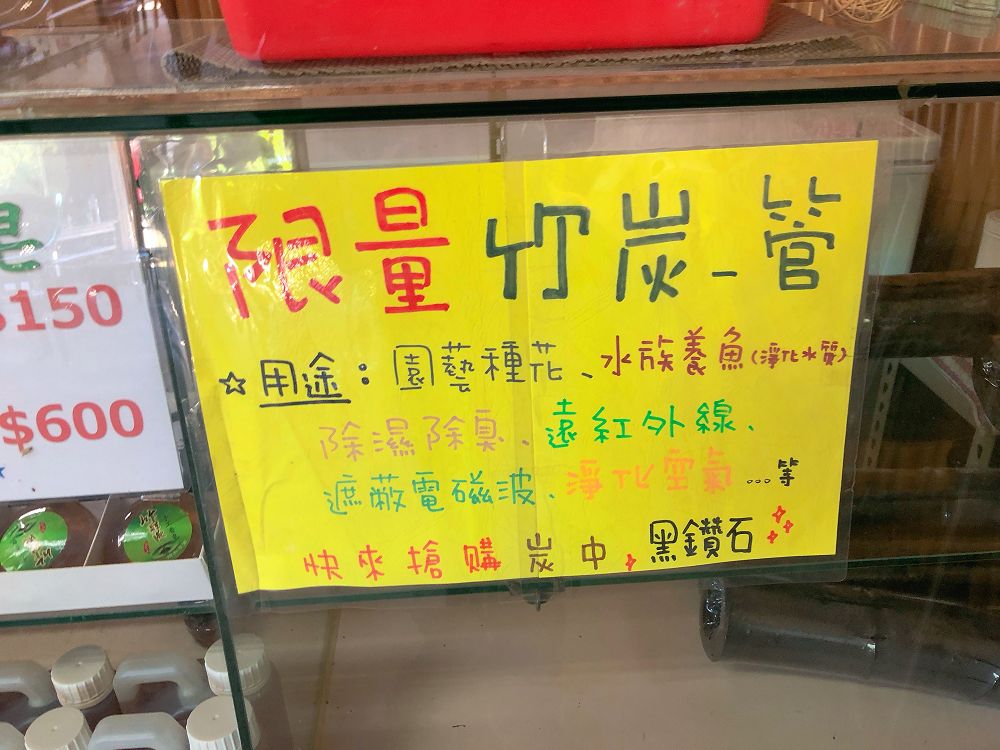 限量竹炭-管
☆用途:園藝種花、水族養魚(淨化水質)
除濕除臭、遠紅外線、
遮蔽電磁波、淨化空氣...等
快來搶購炭中黑鑽石
皂
$150
$600